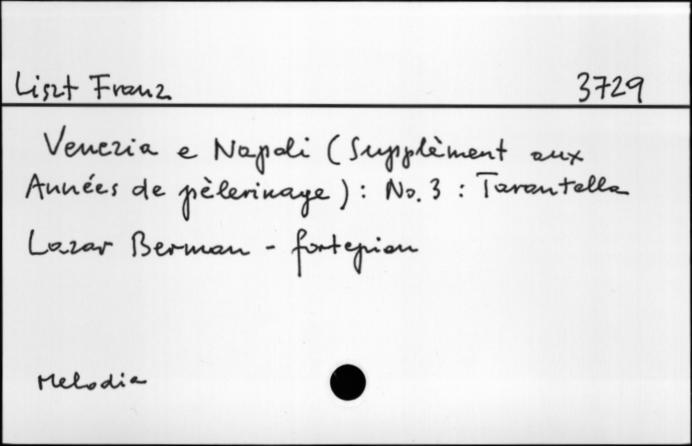 Liszt Franz 3729
Venezia e Napoli (Supplèment aux
Années de pèlerinage): No. 3 : Tarantella
Lazar Berman - fortepian
Melodia